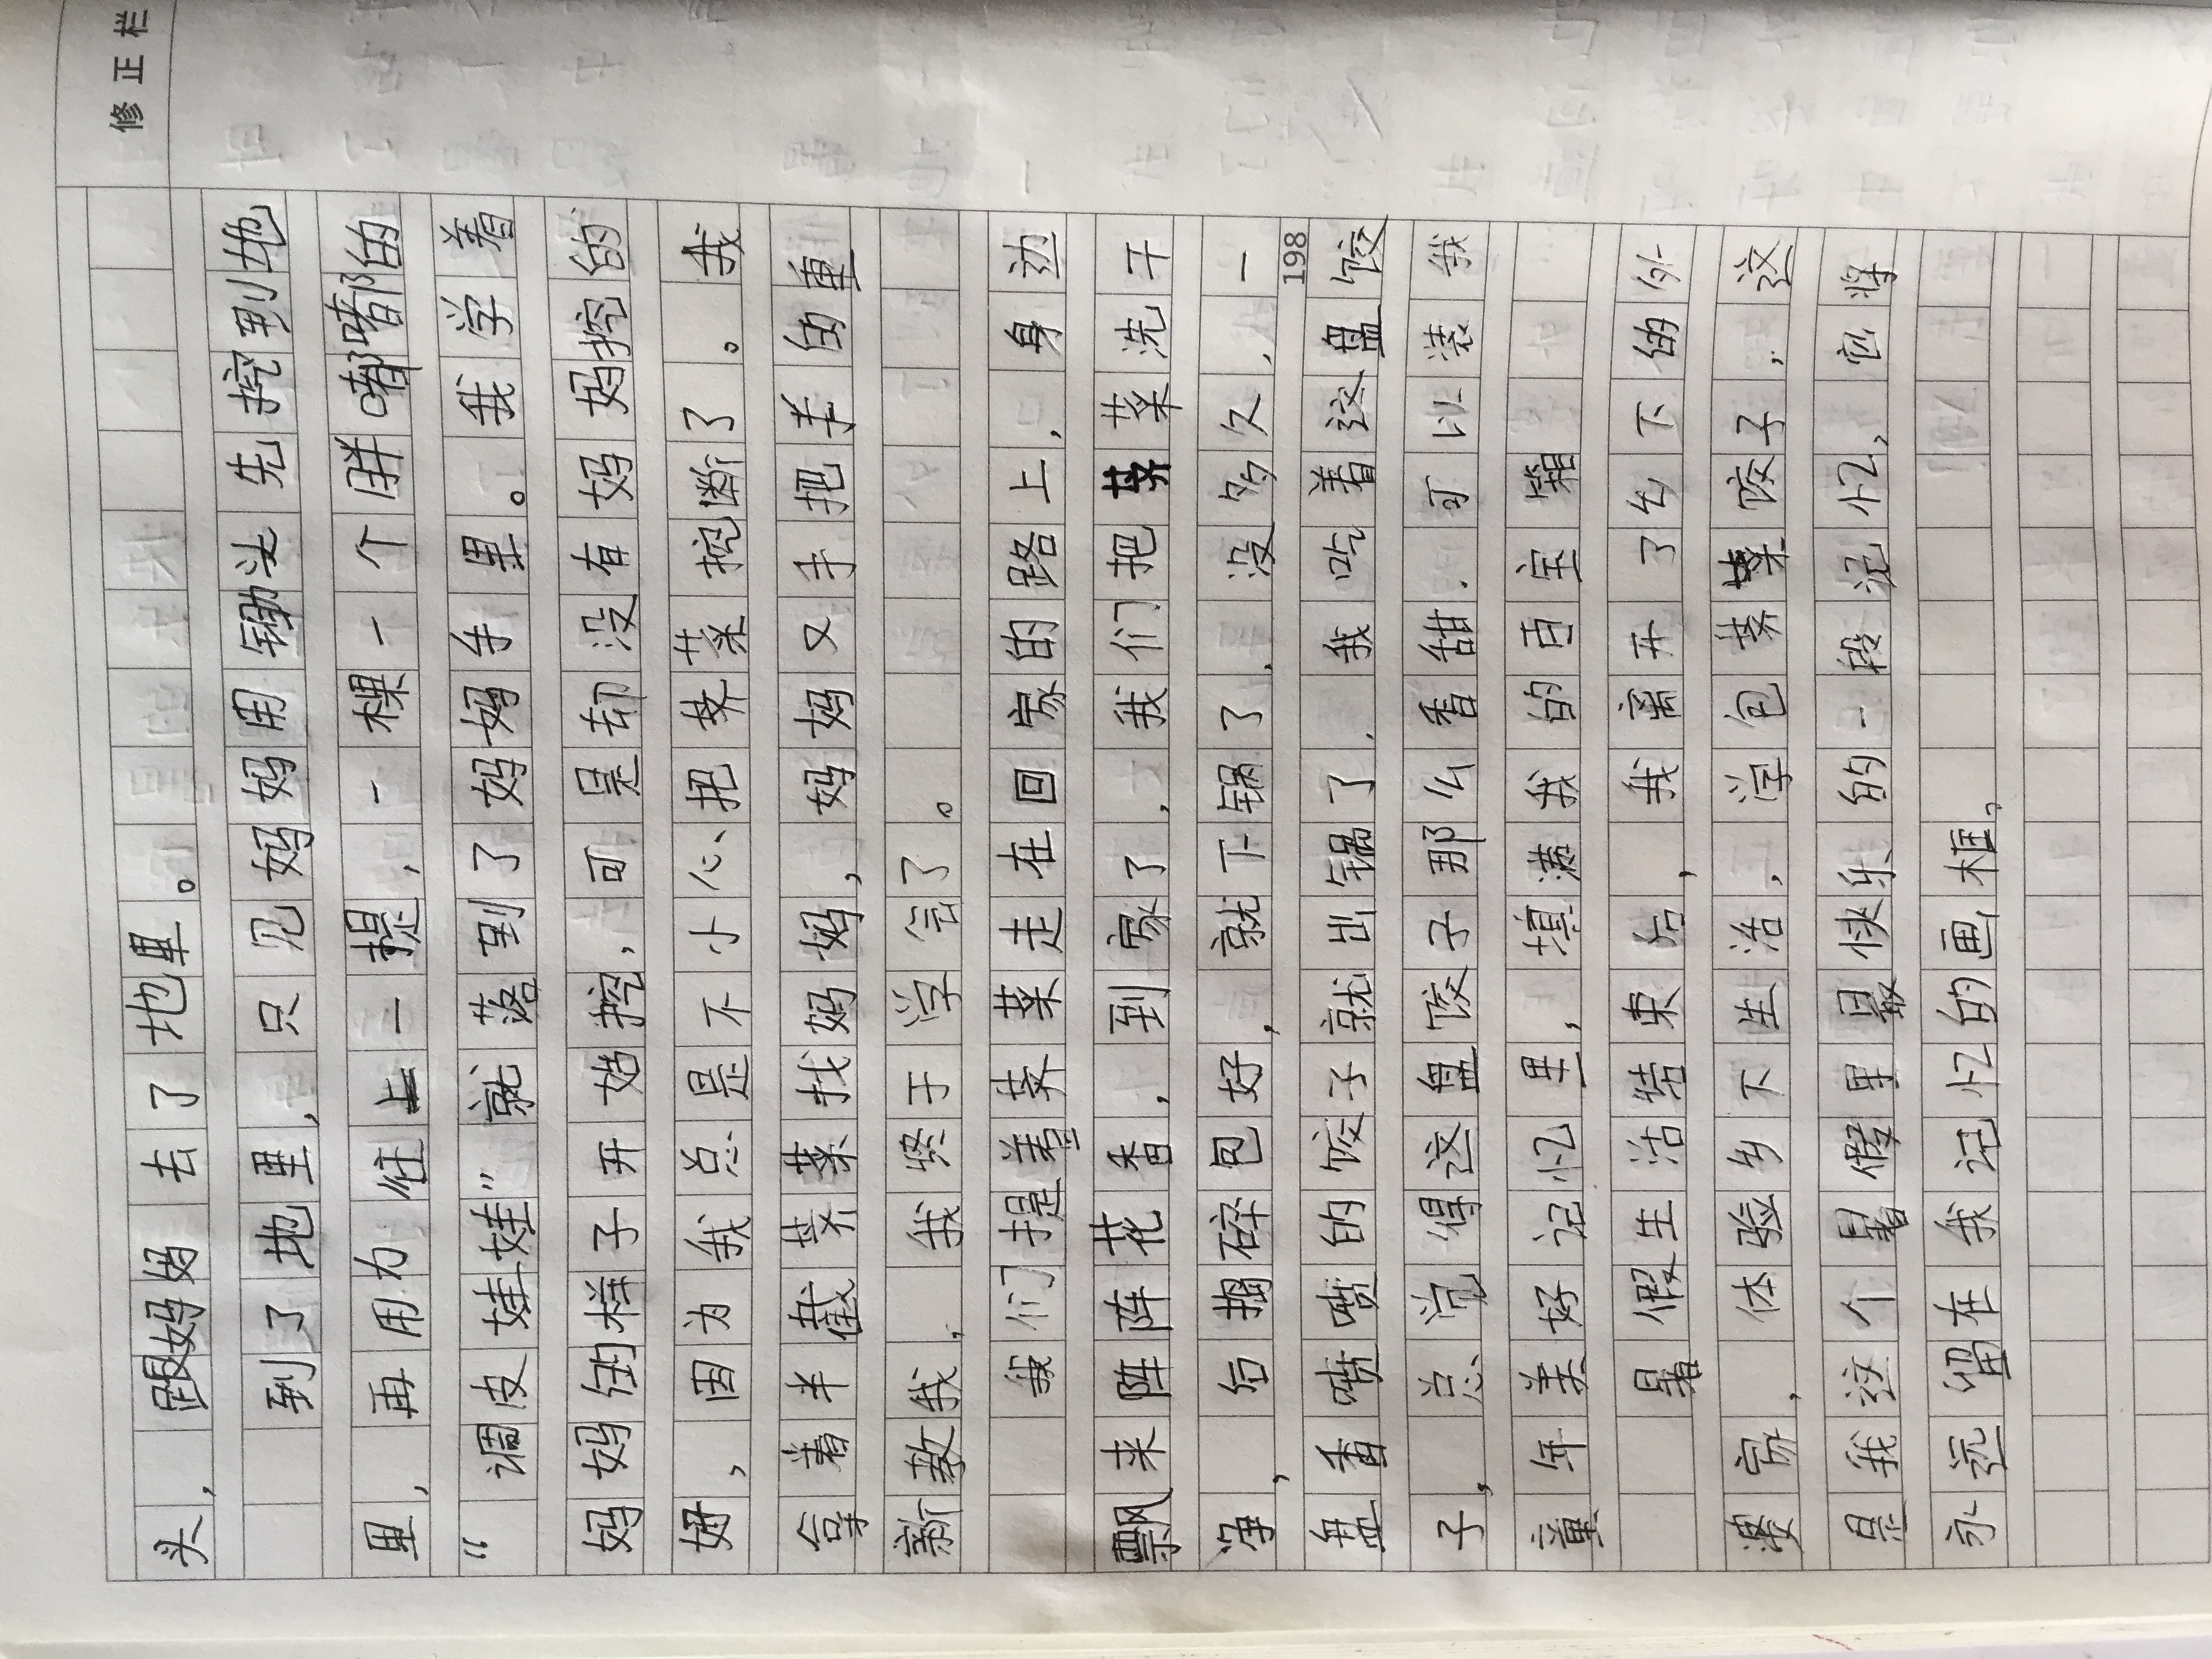 修正栏
头，跟妈妈去了地里。
到了地里，只见妈妈用锄头先挖到地
里，再用力往上一提，一棵一个胖嘟嘟的
“调皮娃娃”就落到了妈妈手里。我学着
妈妈的样子开始挖，可是却没有妈妈挖的
好，因为我总是不小心把荠菜挖断了。我
拿着半截荠菜找妈妈，妈妈又手把手的重
新教我，我终于学会了。
我们提着荠菜走在回家的路上，身边
飘来阵阵花香，到家了，我们把菜洗干
净，后捣碎包好，就下锅了，没多久，一
198
盘香喷喷的饺子就出锅了，我吃着这盘饺
子，总觉得这盘饺子那么香甜，可以装我
童年美好记忆里，填满我的百宝箱
暑假生活结束后，我离开了乡下的外
婆家，体验乡下生活，学包荠菜饺子，这
是我这个暑假里最快乐的一段记忆，它将
永远留在我记忆的画框。